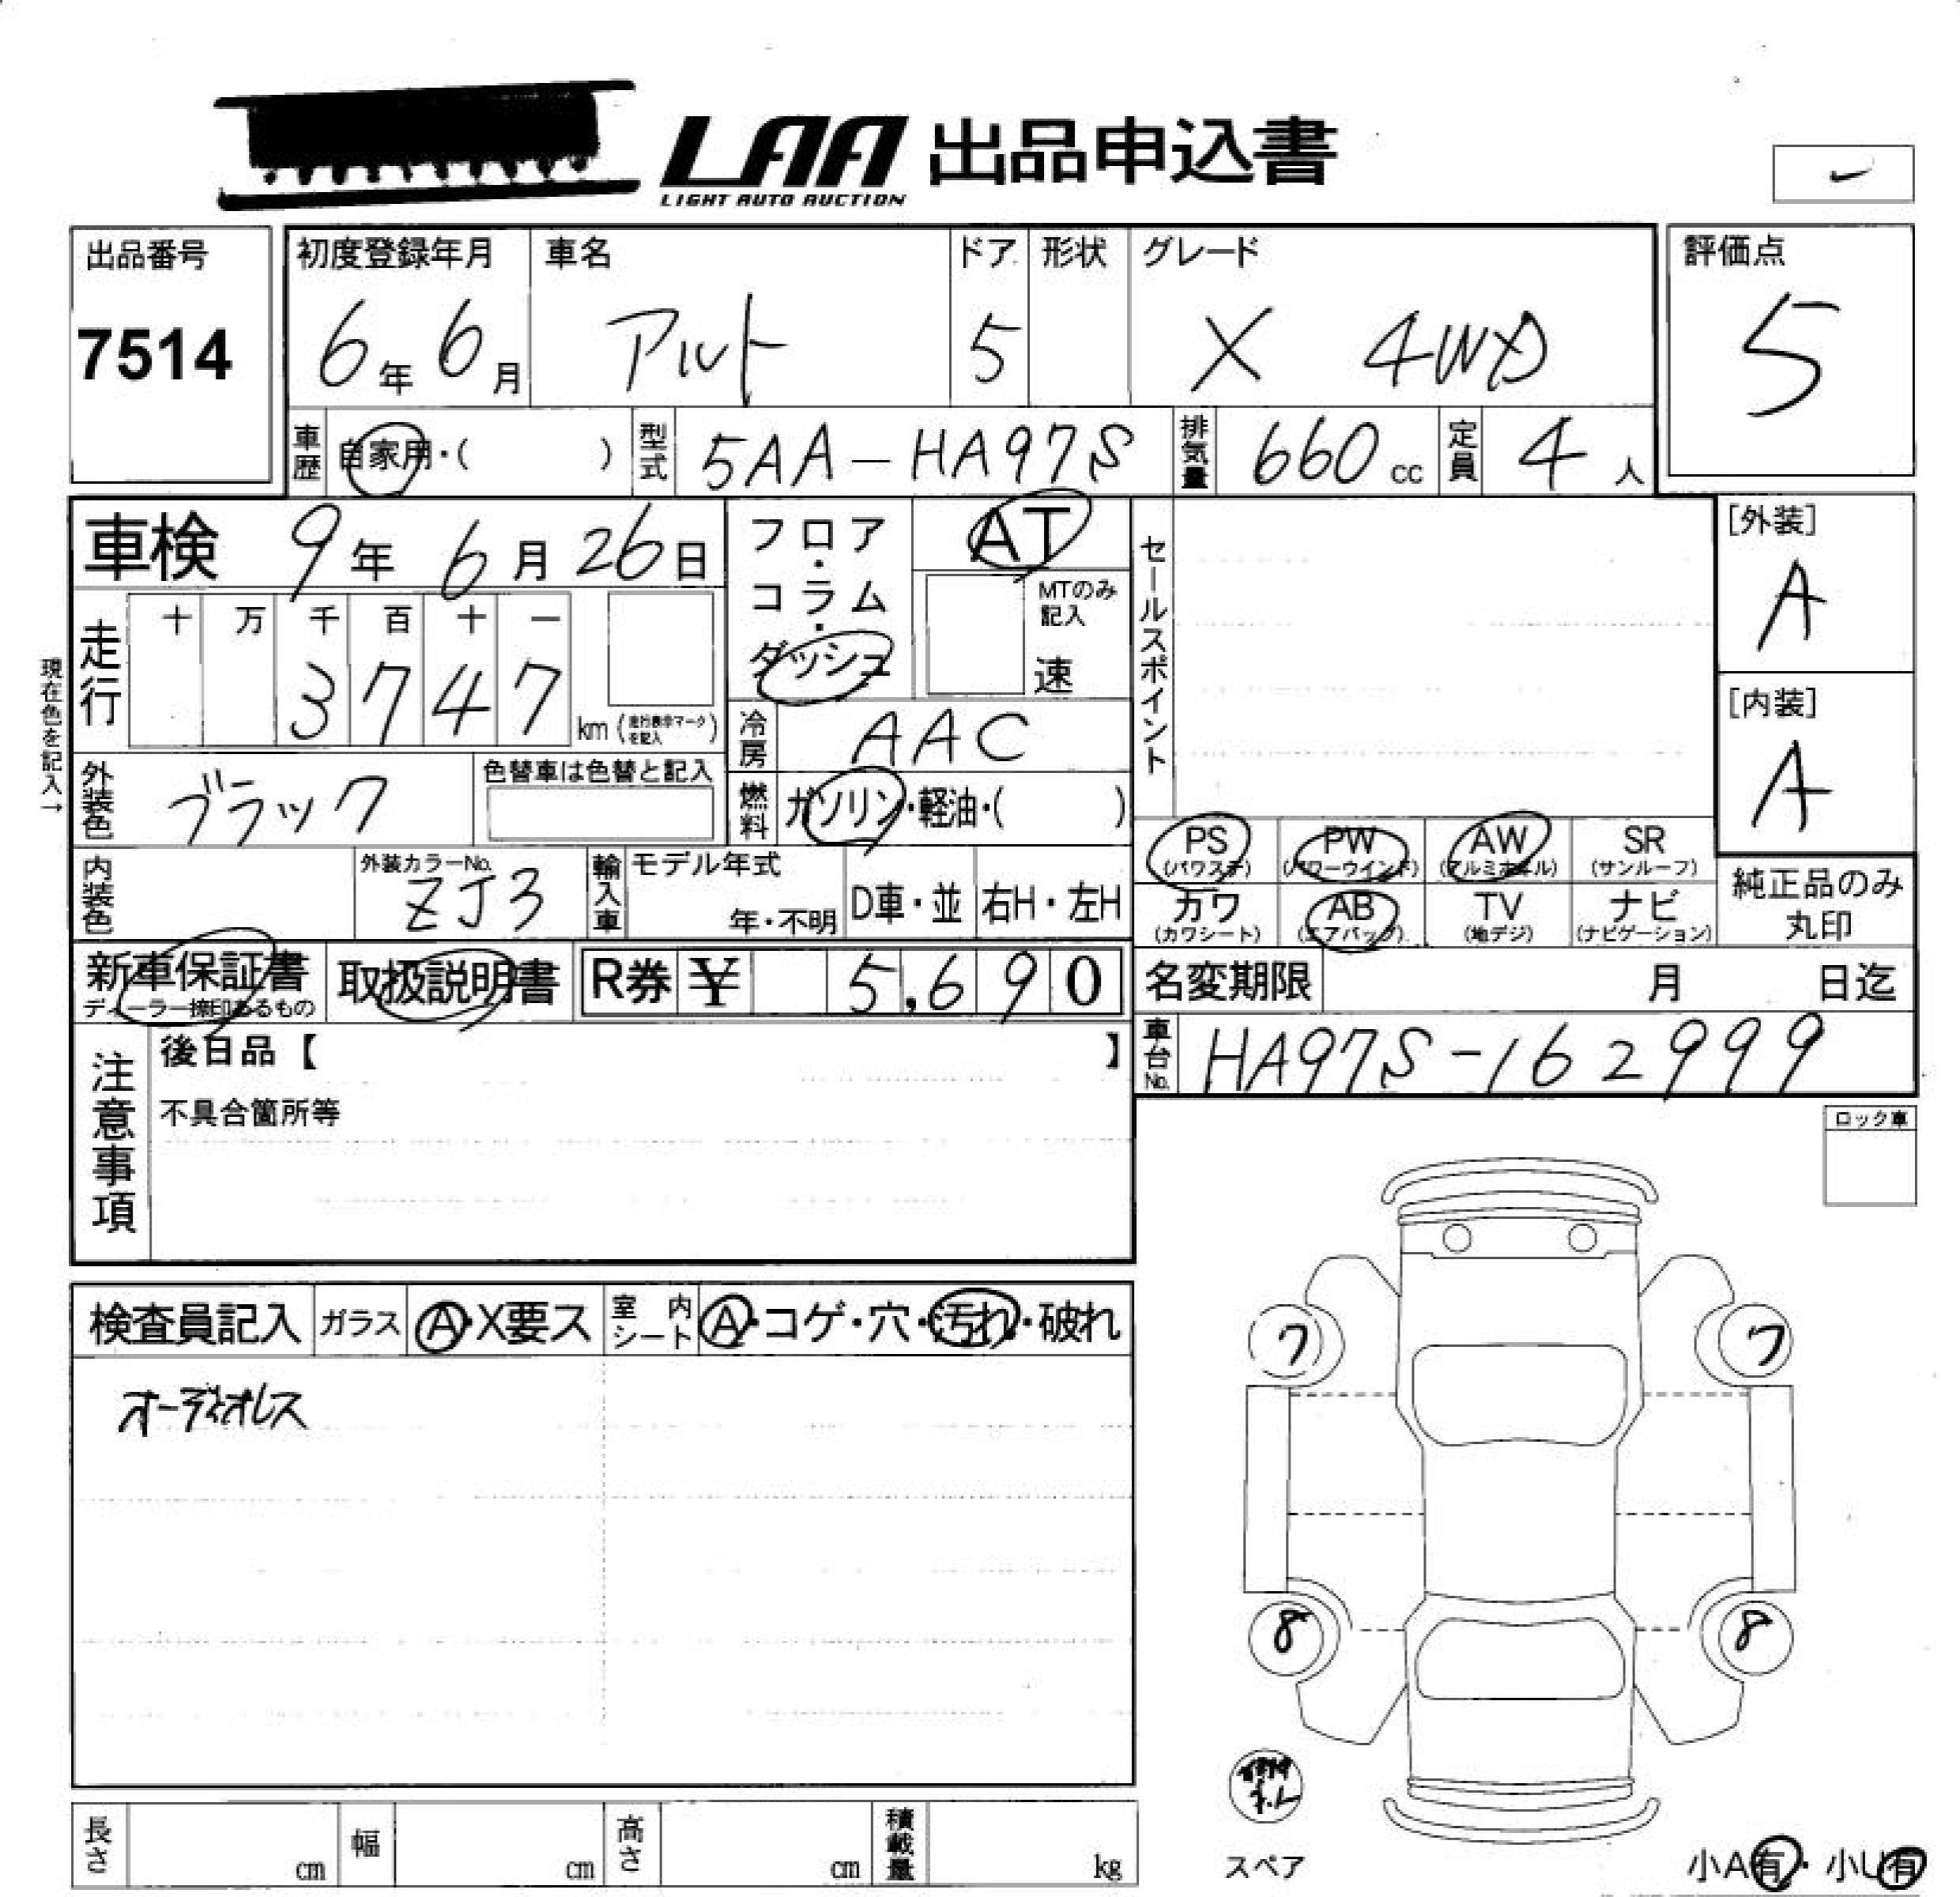 LAA 出品申込書
LIGHT AUTO AUCTION
出品番号
7514
初度登録年月
6年 6月
車名
アルト
ドア
5
形状
グレード
X 4WD
評価点
5
車歴
自家用・( )
型式
5AA-HA97S
排気量
660 cc
定員
4 人
車検 9年 6月 26日
フロア・コラム・ダッシュ
AT
MTのみ記入
速
セールスポイント
[外装]
A
[内装]
A
現在色を記入→
走行
十 万 千 百 十 一
3 7 4 7
km (走行表示マークを記入)
冷房
AAC
外装色
ブラック
色替車は色替と記入
燃料
ガソリン・軽油・( )
PS (パワステ)
PW (パワーウインド)
AW (アルミホイル)
SR (サンルーフ)
カワ (カワシート)
AB (エアバッグ)
TV (地デジ)
ナビ (ナビゲーション)
純正品のみ丸印
内装色
外装カラーNo.
ZJ3
輸入車
モデル年式
年・不明
D車・並
右H・左H
新車保証書
ディーラー捺印あるもの
取扱説明書
R券 ¥ 5,690
名変期限 月 日迄
車台No.
HA97S-162999
注意事項
後日品【 】
不具合箇所等
ロック車
検査員記入
ガラス
A・X要ス
室内シート
A・コゲ・穴・汚れ・破れ
オーディオレス
7 7
8 8
スペア
小A有・小U有
長さ cm
幅 cm
高さ cm
積載量 kg